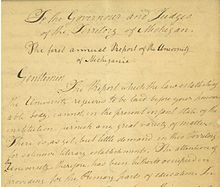 To the Governour and Judges
of the Territory of Michigan.
The first annual Report of the University
of Michigania
Gentlemen,
The Report which the law establishing
the University requires to be laid before your honor-
able body, cannot, in the present infant state of the
institution, furnish any great variety of matter.
There is as yet, but little demand in this Territory
for academic literary establishments. The attention of
University therefore, has been hitherto occupied in
providing for the primary parts of education. In